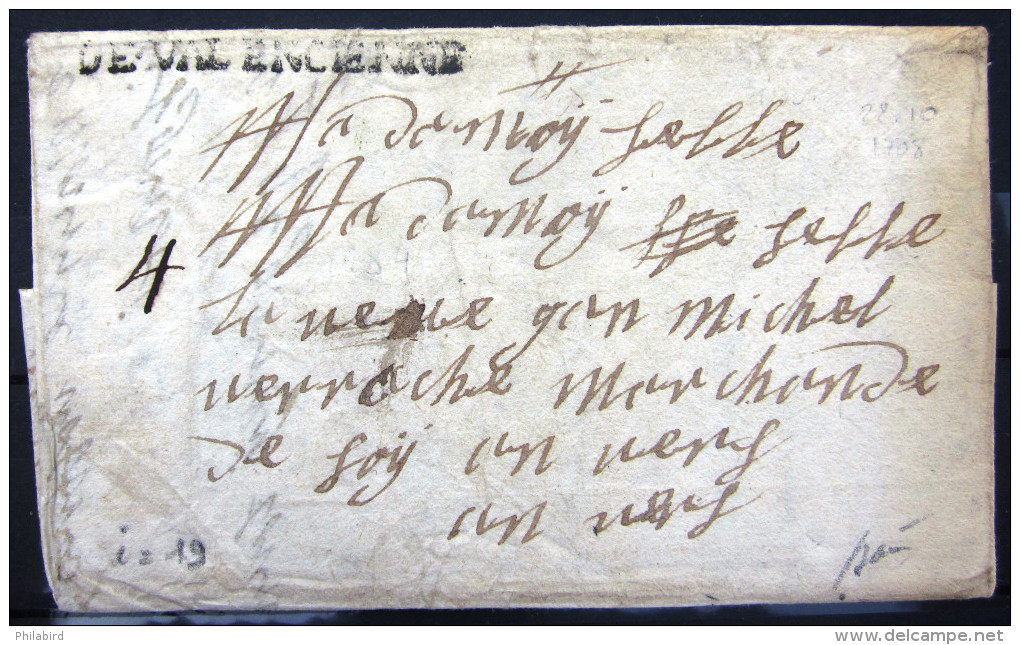 DE VALENCIENNE
Madamoÿ selle
28.10
1708
Madamoÿ selle
4
La vesve gan michel
verroche marchande
de soÿ an vers
an vers
i = 19
Philabird
www.delcampe.net